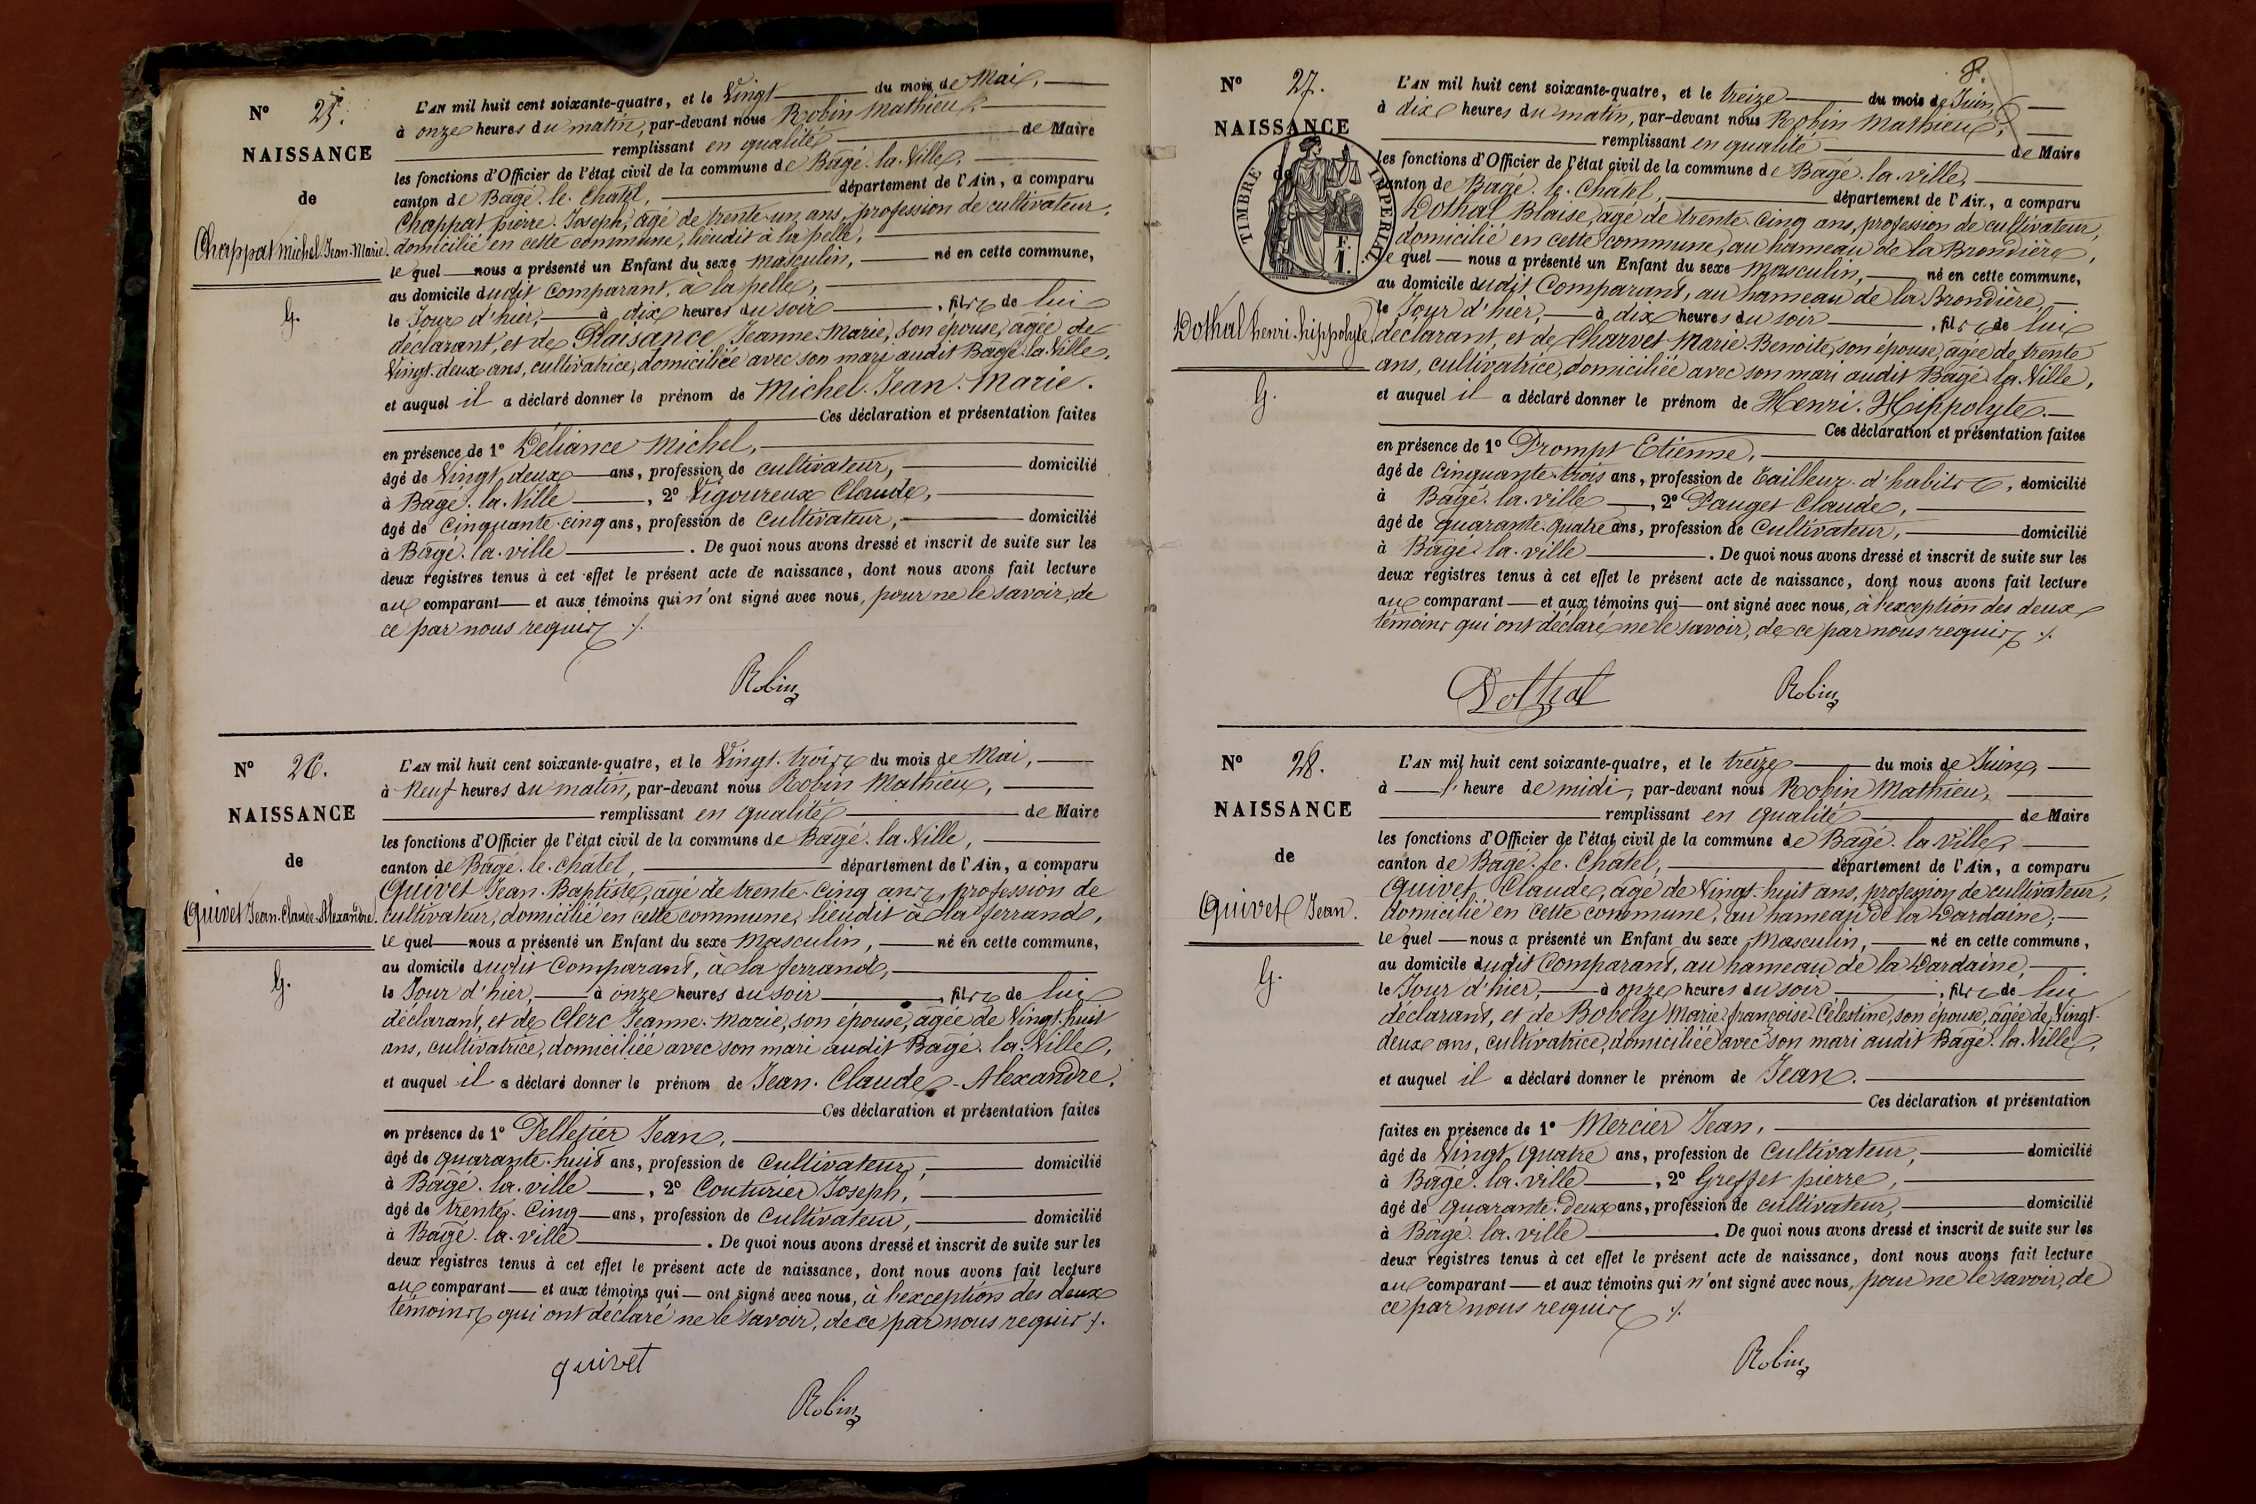 N° 25.
NAISSANCE
de
Chappat Michel Jean-Marie.
G.
L'AN mil huit cent soixante-quatre, et le Vingt du mois de Mai,
à onze heures du matin, par-devant nous Robin Mathieu,
remplissant en qualité de Maire
les fonctions d'Officier de l'état civil de la commune de Bâgé-la-Ville,
canton de Bâgé-le-Châtel, département de l'Ain, a comparu
Chappat pierre-Joseph, âgé de trente-un ans, profession de cultivateur,
domicilié en cette commune, lieudit à la pelle,
le quel nous a présenté un Enfant du sexe masculin, né en cette commune,
au domicile dudit Comparant, à la pelle,
le Jour d'hier, à dix heures du soir, fils de lui
déclarant, et de Plaisance Jeanne-Marie, son épouse, âgée de
Vingt-deux ans, cultivatrice, domiciliée avec son mari audit Bâgé-la-Ville,
et auquel il a déclaré donner le prénom de Michel-Jean-Marie.
Ces déclaration et présentation faites
en présence de 1° Déliance Michel,
âgé de Vingt deux ans, profession de cultivateur, domicilié
à Bâgé-la-Ville, 2° Vigoureux Claude,
âgé de Cinquante-cinq ans, profession de Cultivateur, domicilié
à Bâgé-la-ville. De quoi nous avons dressé et inscrit de suite sur les
deux registres tenus à cet effet le présent acte de naissance, dont nous avons fait lecture
au comparant et aux témoins qui n'ont signé avec nous, pour ne le savoir, de
ce par nous requis ./.
Robin
N° 26.
NAISSANCE
de
Quivet Jean-Claude-Alexandre.
G.
L'AN mil huit cent soixante-quatre, et le Vingt-trois du mois de Mai,
à Neuf heures du matin, par-devant nous Robin Mathieu,
remplissant en qualité de Maire
les fonctions d'Officier de l'état civil de la commune de Bâgé-la-Ville,
canton de Bâgé-le-Châtel, département de l'Ain, a comparu
Quivet Jean-Baptiste, âgé de trente-cinq ans, profession de
cultivateur, domicilié en cette commune, lieudit à la ferrand,
le quel nous a présenté un Enfant du sexe Masculin, né en cette commune,
au domicile dudit Comparant, à la ferrand,
le Jour d'hier, à onze heures du soir, fils de lui
déclarant, et de Clerc Jeanne-Marie, son épouse, âgée de Vingt-huit
ans, cultivatrice, domiciliée avec son mari audit Bâgé-la-Ville,
et auquel il a déclaré donner le prénom de Jean-Claude-Alexandre.
Ces déclaration et présentation faites
en présence de 1° Pelletier Jean,
âgé de quarante-huit ans, profession de Cultivateur, domicilié
à Bâgé-la-ville, 2° Couturier Joseph,
âgé de trente-Cinq ans, profession de Cultivateur, domicilié
à Bâgé-la-ville. De quoi nous avons dressé et inscrit de suite sur les
deux registres tenus à cet effet le présent acte de naissance, dont nous avons fait lecture
au comparant et aux témoins qui ont signé avec nous, à l'exception des deux
témoins qui ont déclaré ne le savoir, de ce par nous requis ./.
quivet
Robin
8.
N° 27.
NAISSANCE
de
TIMBRE IMPERIAL
F.
1.
Dothal henri-hippolyte
G.
L'AN mil huit cent soixante-quatre, et le treize du mois de Juin,
à dix heures du matin, par-devant nous Robin Mathieu,
remplissant en qualité de Maire
les fonctions d'Officier de l'état civil de la commune de Bâgé-la-ville,
canton de Bâgé-le-Châtel, département de l'Air., a comparu
Dothal Blaise, âgé de trente-cinq ans, profession de cultivateur,
domicilié en cette commune, au hameau de la Brondière,
le quel nous a présenté un Enfant du sexe Masculin, né en cette commune,
au domicile dudit Comparant, au hameau de la Brondière,
le Jour d'hier, à dix heures du soir, fils de lui
déclarant, et de Charvet Marie-Benoite, son épouse, âgée de trente
ans, cultivatrice, domiciliée avec son mari audit Bâgé-la-Ville,
et auquel il a déclaré donner le prénom de Henri-Hippolyte.
Ces déclaration et présentation faites
en présence de 1° Prompt Etienne,
âgé de Cinquante-trois ans, profession de tailleur-d'habits, domicilié
à Bâgé-la-ville, 2° Pauget Claude,
âgé de quarante-quatre ans, profession de Cultivateur, domicilié
à Bâgé-la-ville. De quoi nous avons dressé et inscrit de suite sur les
deux registres tenus à cet effet le présent acte de naissance, dont nous avons fait lecture
au comparant et aux témoins qui ont signé avec nous, à l'exception des deux
témoins qui ont déclaré ne le savoir, de ce par nous requis ./.
Dothal Robin
N° 28.
NAISSANCE
de
Quivet Jean.
G.
L'AN mil huit cent soixante-quatre, et le treize du mois de Juin,
à l' heure de midi, par-devant nous Robin Mathieu,
remplissant en qualité de Maire
les fonctions d'Officier de l'état civil de la commune de Bâgé-la-ville,
canton de Bâgé-le-Châtel, département de l'Ain, a comparu
Quivet Claude, âgé de Vingt-huit ans, profession de cultivateur,
domicilié en cette commune, au hameau de la Dardaine,
le quel nous a présenté un Enfant du sexe Masculin, né en cette commune,
au domicile dudit Comparant, au hameau de la Dardaine,
le Jour d'hier, à onze heures du soir, fils de lui
déclarant, et de Bovely Marie-françoise-Célestine, son épouse, âgée de Vingt-
deux ans, cultivatrice, domiciliée avec son mari audit Bâgé-la-Ville,
et auquel il a déclaré donner le prénom de Jean.
Ces déclaration et présentation
faites en présence de 1° Mercier Jean,
âgé de Vingt quatre ans, profession de Cultivateur, domicilié
à Bâgé-la-ville, 2° Greffet pierre,
âgé de quarante-deux ans, profession de cultivateur, domicilié
à Bâgé-la-ville. De quoi nous avons dressé et inscrit de suite sur les
deux registres tenus à cet effet le présent acte de naissance, dont nous avons fait lecture
au comparant et aux témoins qui n'ont signé avec nous, pour ne le savoir, de
ce par nous requis ./.
Robin